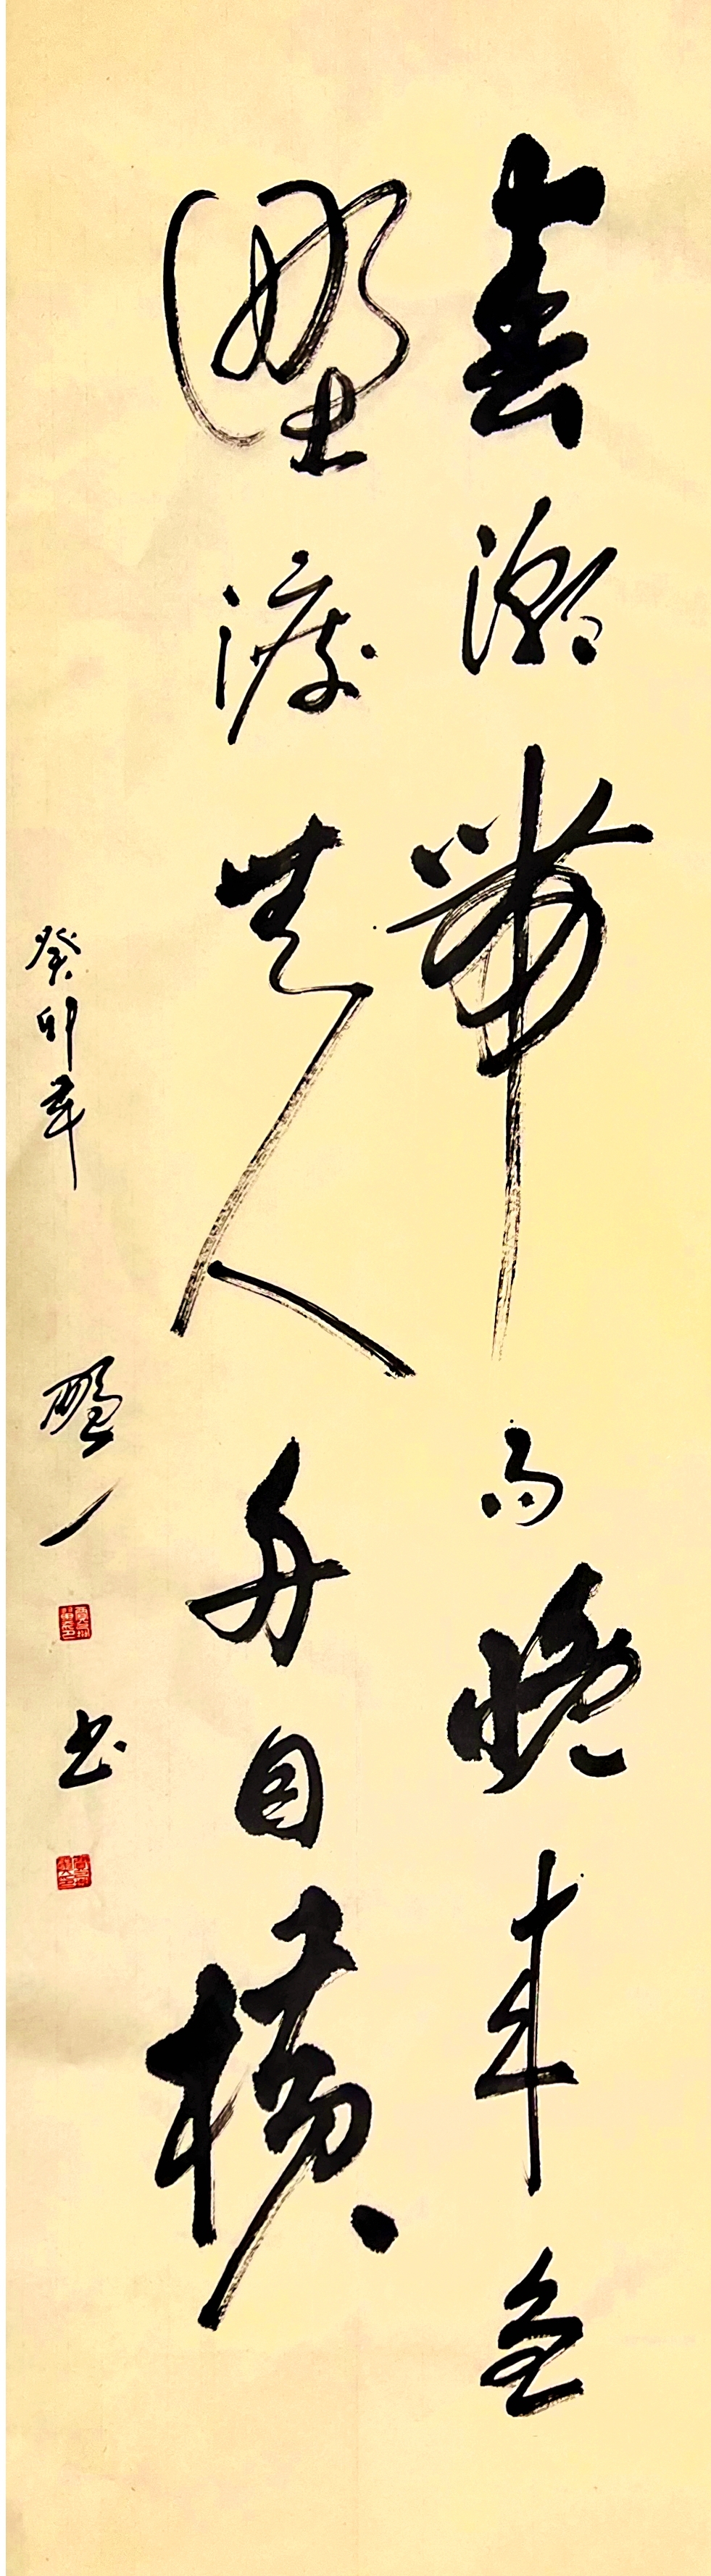 春潮帶雨晚来急
野渡无人舟自横
癸卯年
一
书